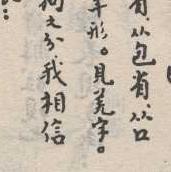 有从包有以口
羊形。見羌字。
何之分我相信